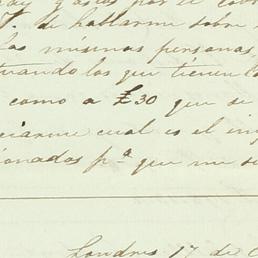 y estas por el cob
V. de hablarme sobre
las mismas personas,
tuando los que tienen l
como a £30 que se
ciarme cual es el in
cionados pa. que me s
Londres 17 de O